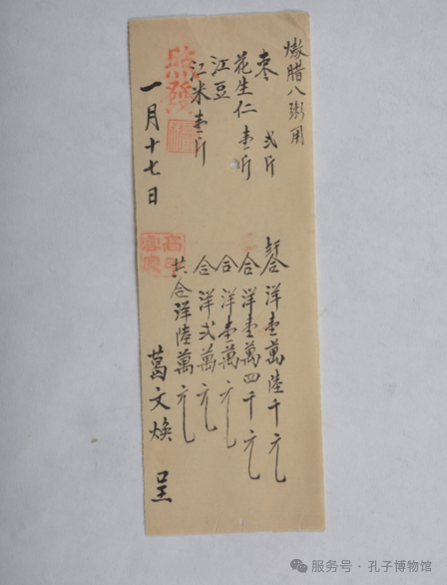 熬腊八粥用
枣 弍斤 合洋壹萬陸千元
花生仁 壹斤 合洋壹萬四千元
江豆 合洋壹萬元
江米壹斤 合洋弍萬元
共合洋陸萬元
照發
一月十七日 葛文焕 呈
服务号 · 孔子博物馆